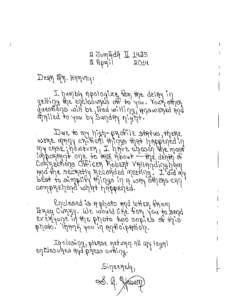 2 Jumada II 1435
2 April 2014
Dear Mr. Harvey:
I humbly apologize for the delay in
getting the enclosures off to you. Your other
questions will be, God willing, answered and
mailed to you by Sunday night.
Due to my high-profile status, there
were many critical things that happened in
my case, however, I have chosen the most
important one to ask about — the death of
Corrections Officer Robert Vallandingham
and the secretly recorded meeting. I did my
best to simplify things in a way others can
comprehend what happened.
Enclosed is a photo and letter from
Greg Curry. We would like for you to send
everyone in the photo two copies of this
photo. Thank you in anticipation.
In closing, please return all my legal
enclosures and press cutting.
Sincerely,